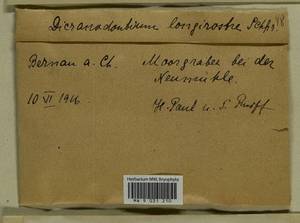 Dicranodontium longirostre Schpr. 98
Bernau a. Ch. Moorgraben bei der
Neumühle.
10 VI 1916 H. Paul u. S. Ruoff
Herbarium MW, Bryophyta